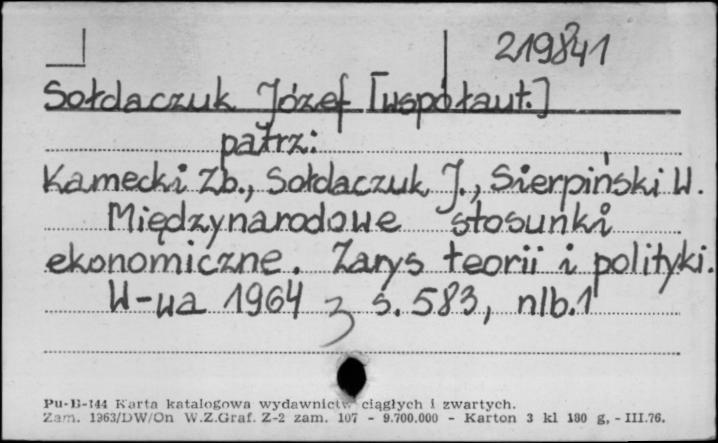 219841
Sołdaczuk Józef [współaut.]
patrz:
Kamecki Zb., Sołdaczuk J., Sierpiński W.
Międzynarodowe stosunki
ekonomiczne. Zarys teorii i polityki.
W-wa 1964 s. 583, nlb. 1
Pu-B-144 Karta katalogowa wydawnictw ciągłych i zwartych.
Zam. 1363/DW/On W.Z.Graf. Z-2 zam. 107 - 9.700.000 - Karton 3 kl 180 g, - III.76.